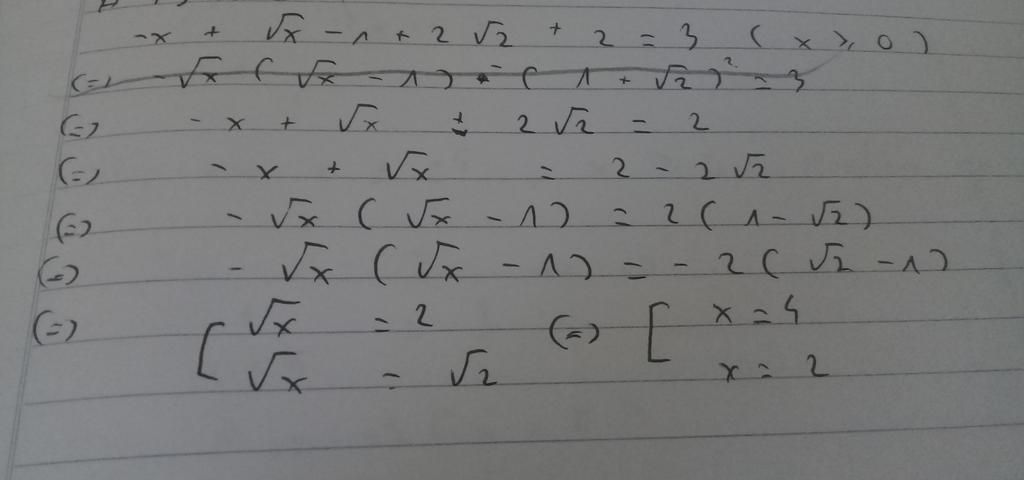 -x + √x - 1 + 2√2 + 2 = 3 (x ⩾ 0)
(=) -√x (√x - 1) - (1 + √2)² = 3
(=) - x + √x + 2√2 = 2
(=) - x + √x = 2 - 2√2
(=) - √x (√x - 1) = 2(1 - √2)
(=) - √x (√x - 1) = - 2(√2 - 1)
(=) [ √x = 2 (=) [ x = 4
√x = √2 x = 2